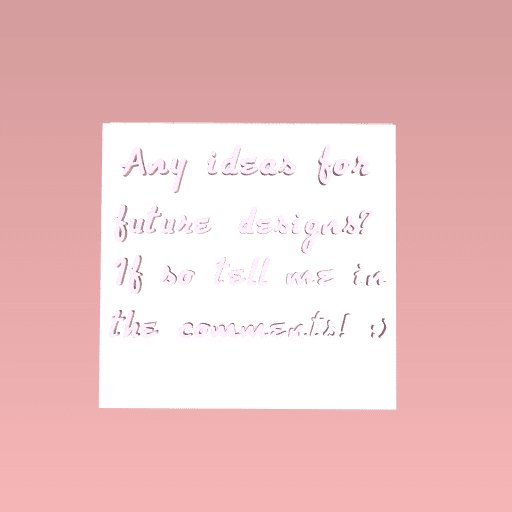 Any ideas for
future designs?
If so tell me in
the comments! :)